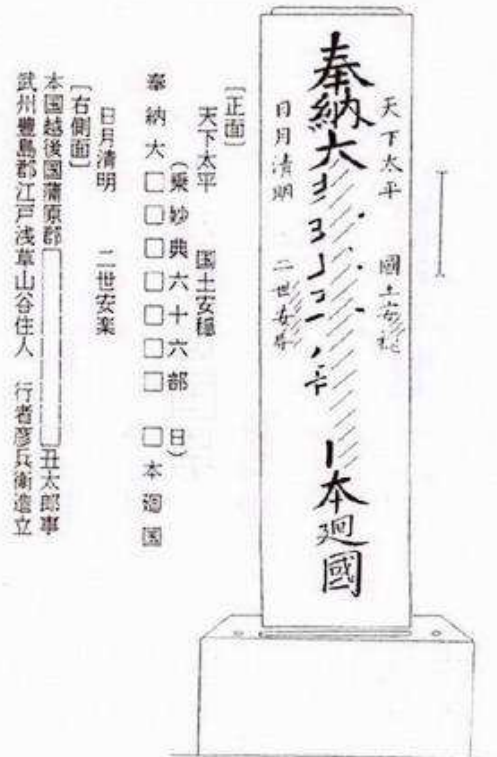 天下太平 國土安穏
奉納大
本廻國
日月清明 二世安
[正面]
天下太平 国土安穏
(乗妙典六十六部 日)
奉納大□□□□□□□ □本廻国
日月清明 二世安楽
[右側面]
本国越後国蒲原郡 丑太郎事
武州豊島郡江戸浅草山谷住人 行者彦兵衛造立